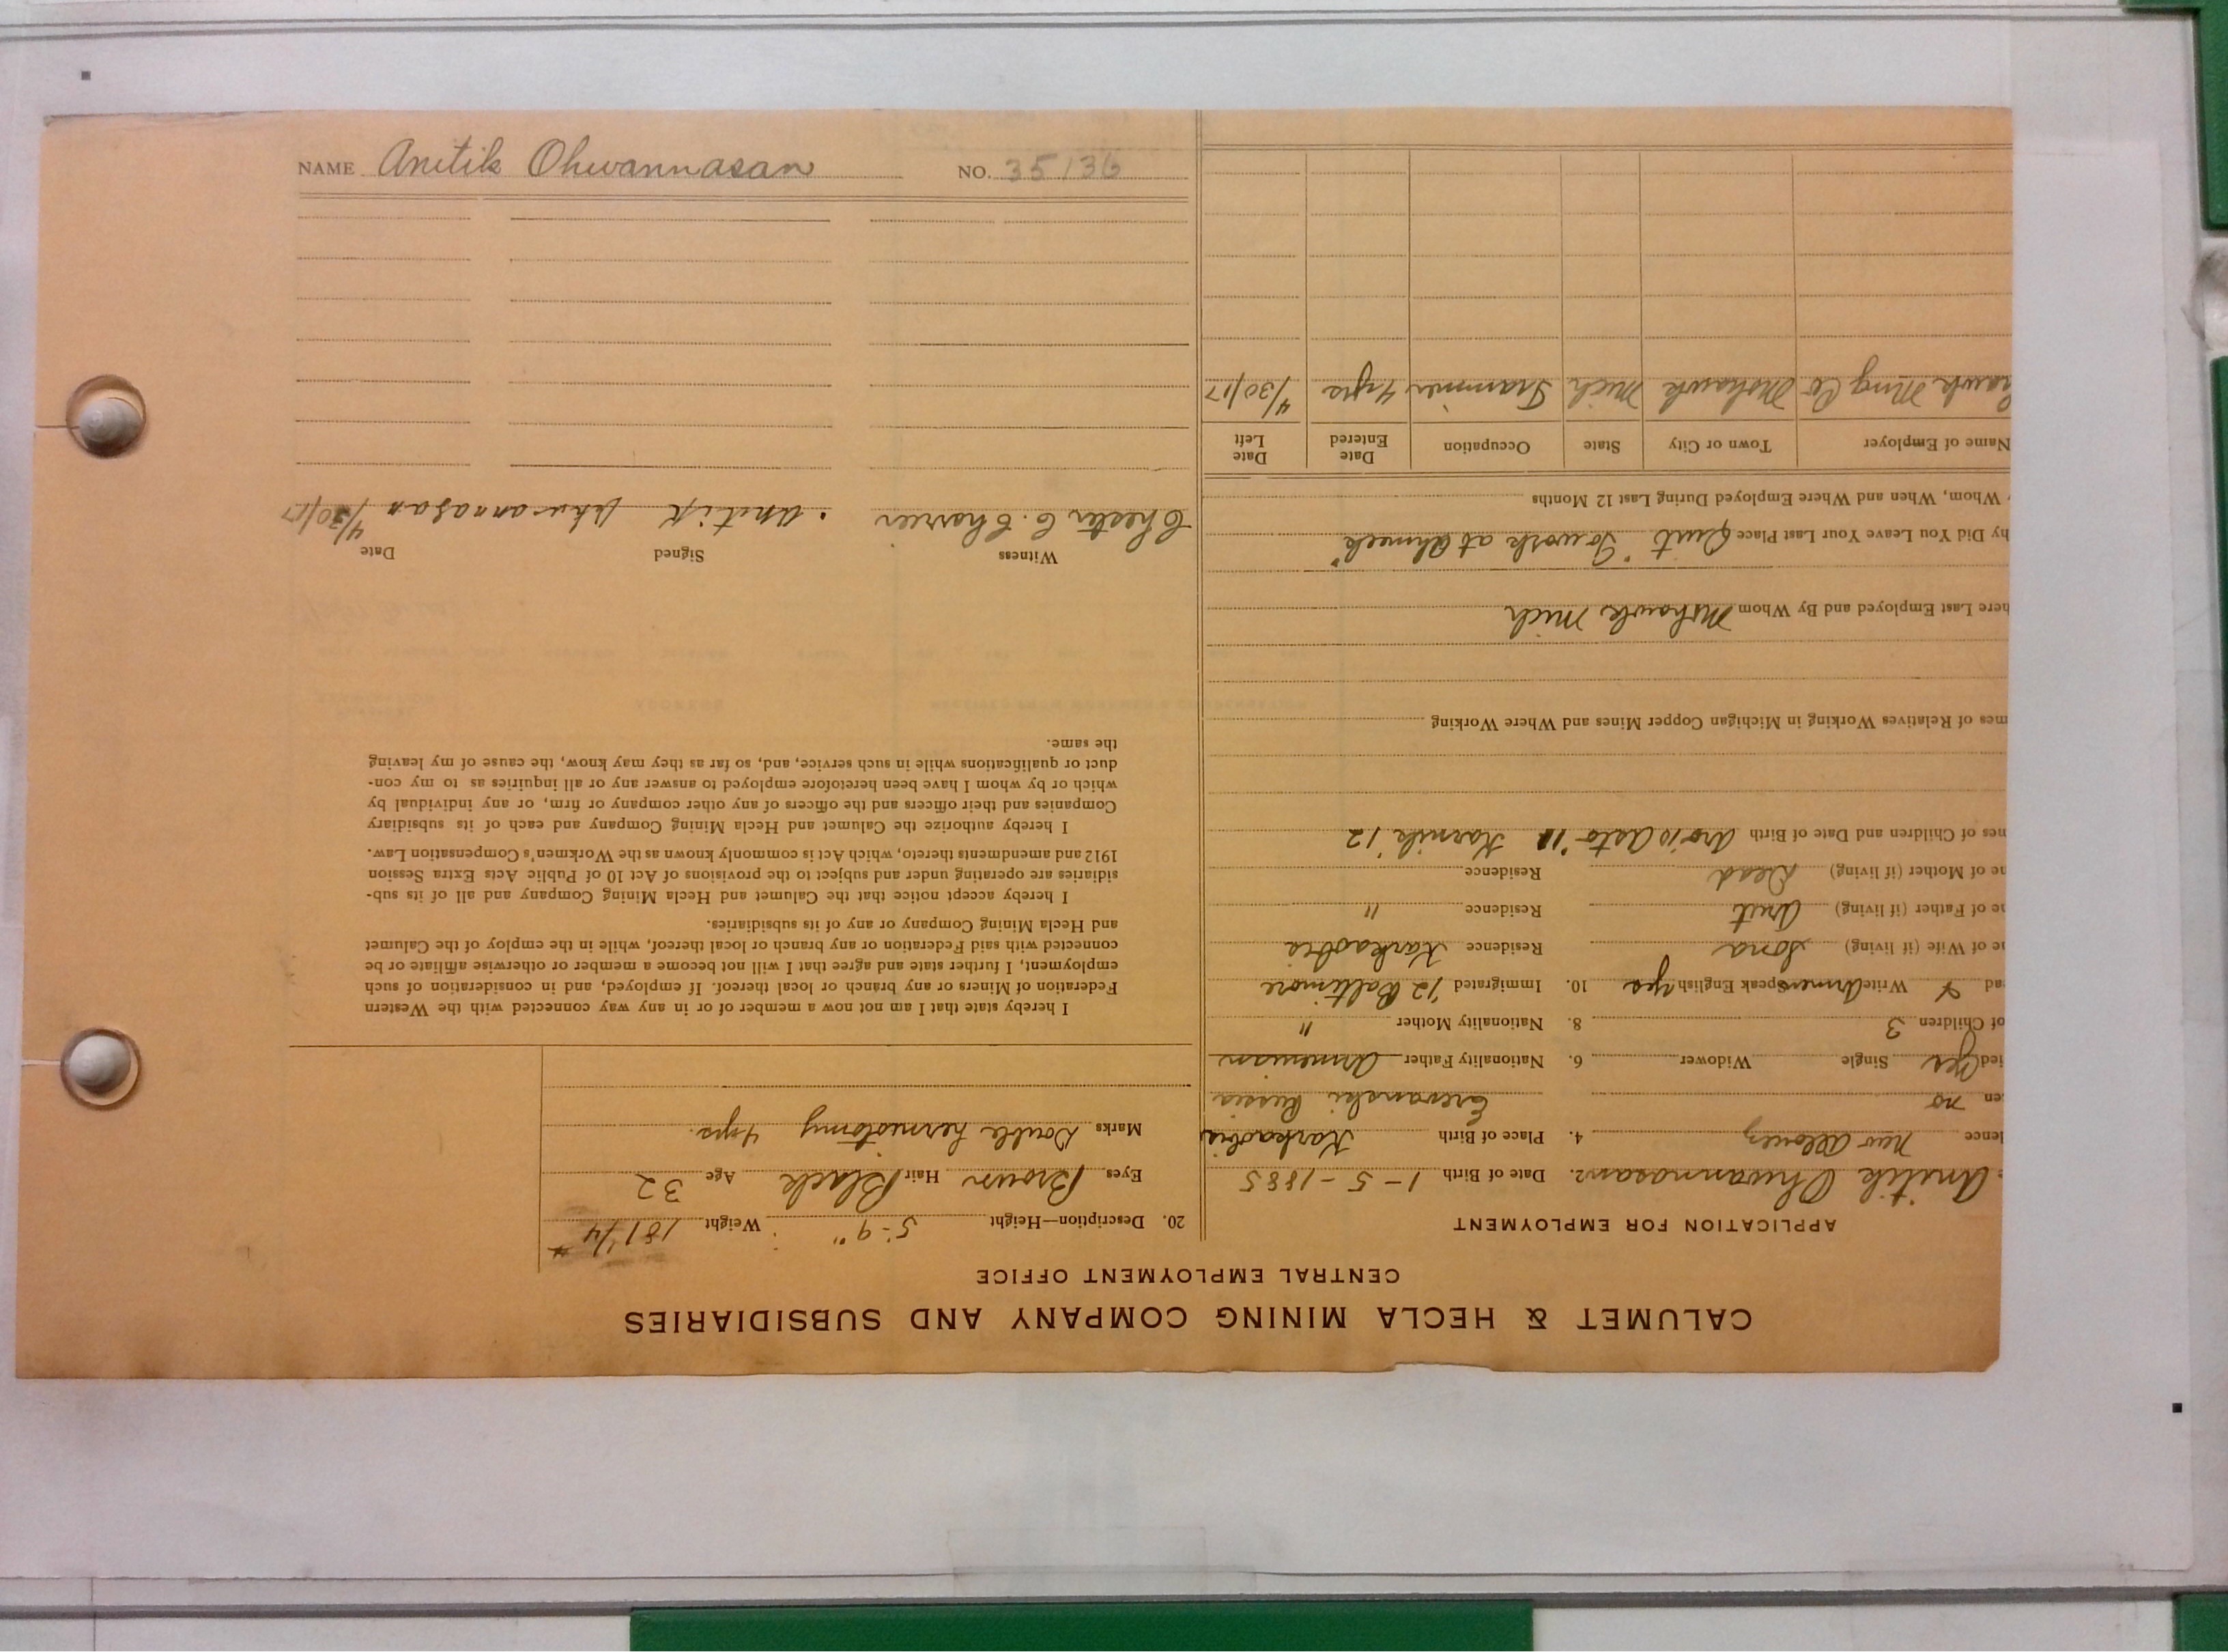 NAME Anitik Ohwannasan NO. 35136
CALUMET & HECLA MINING COMPANY AND SUBSIDIARIES
CENTRAL EMPLOYMENT OFFICE
APPLICATION FOR EMPLOYMENT
Anitik Ohwannasan 2. Date of Birth 1-5-1885
dence New Allouez 4. Place of Birth
en no Erevanski Russia
ied Yes Single Widower 6. Nationality Father Armenian
of Children 3 8. Nationality Mother "
ad Write Armen Speak English yes 10. Immigrated '12 Baltimore
ne of Wife (if living) Sona Residence
ne of Father (if living) Residence "
ne of Mother (if living) Dead Residence
nes of Children and Date of Birth
mes of Relatives Working in Michigan Copper Mines and Where Working
here Last Employed and By Whom Mohawk Mich
hy Did You Leave Your Last Place Quit "To work at Ahmeek"
Whom, When and Where Employed During Last 12 Months
Name of Employer Town or City State Occupation Date Entered Date Left
hawk Ming Co Mohawk Mich Trammer 4 yrs 4/30/17
20. Description—Height 5-9" Weight 181 1/4 #
Eyes Brown Hair Black Age 32
Marks Double herniotomy 4 yrs.
I hereby state that I am not now a member of or in any way connected with the Western
Federation of Miners or any branch or local thereof. If employed, and in consideration of such
employment, I further state and agree that I will not become a member or otherwise affiliate or be
connected with said Federation or any branch or local thereof, while in the employ of the Calumet
and Hecla Mining Company or any of its subsidiaries.
I hereby accept notice that the Calumet and Hecla Mining Company and all of its sub-
sidiaries are operating under and subject to the provisions of Act 10 of Public Acts Extra Session
1912 and amendments thereto, which Act is commonly known as the Workmen's Compensation Law.
I hereby authorize the Calumet and Hecla Mining Company and each of its subsidiary
Companies and their officers and the officers of any other company or firm, or any individual by
which or by whom I have been heretofore employed to answer any or all inquiries as to my con-
duct or qualifications while in such service, and, so far as they may know, the cause of my leaving
the same.
Witness Signed Date
Chester C. 4/30/17